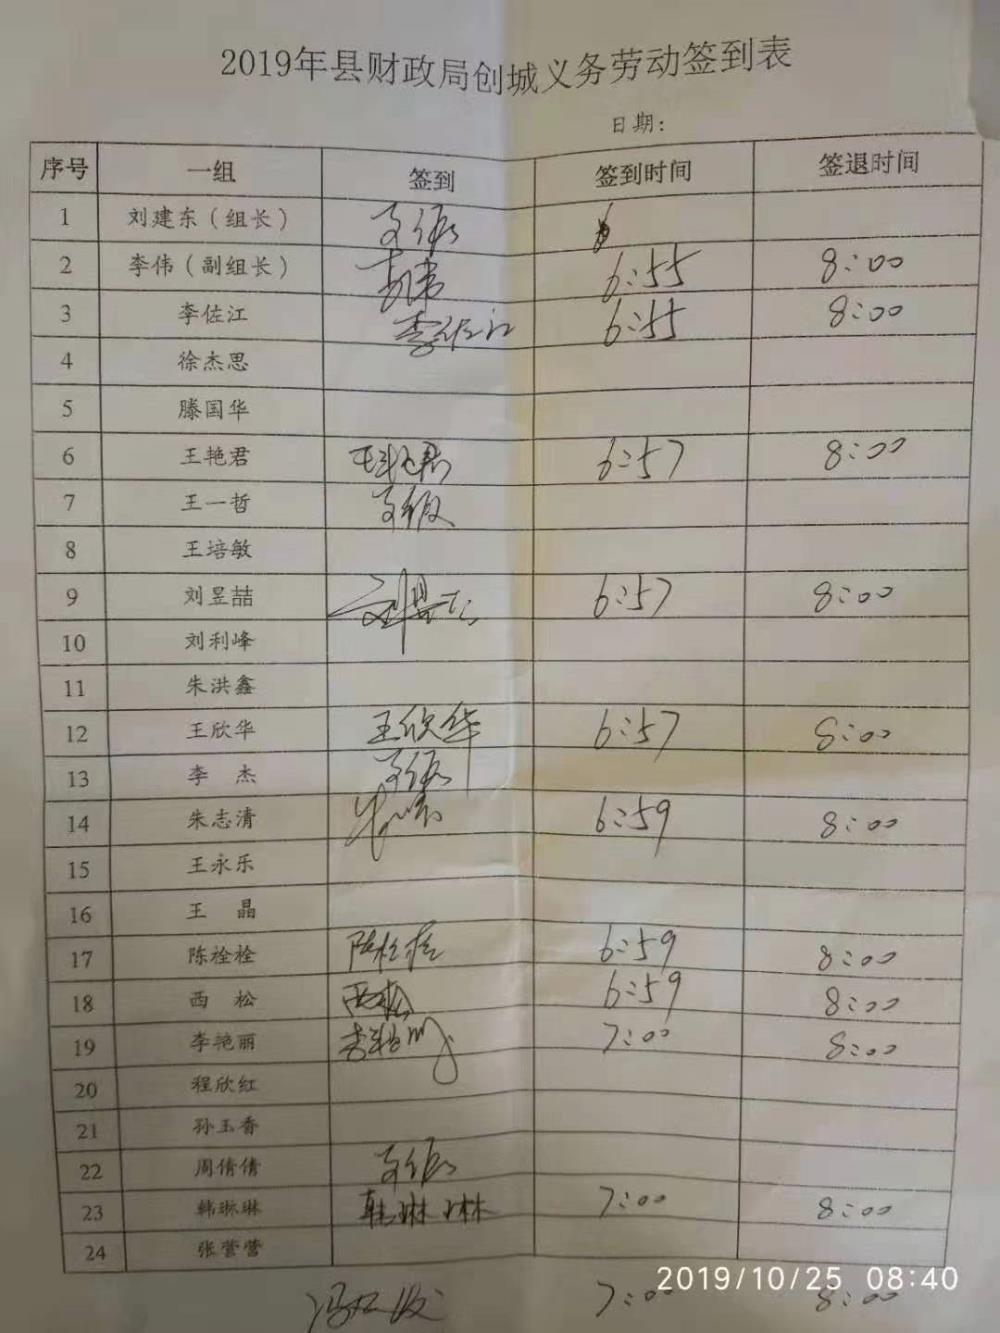 2019年县财政局创城义务劳动签到表
日期:
序号 一组 签到 签到时间 签退时间
1 刘建东（组长）
2 李伟（副组长） 李伟 6:55 8:00
3 李佐江 李佐江 6:55 8:00
4 徐杰思
5 滕国华
6 王艳君 王艳君 6:57 8:00
7 王一哲
8 王培敏
9 刘昱喆 刘昱喆 6:57 8:00
10 刘利峰
11 朱洪鑫
12 王欣华 王欣华 6:57 8:00
13 李 杰
14 朱志清 6:59 8:00
15 王永乐
16 王 晶
17 陈栓栓 陈栓栓 6:59 8:00
18 西 松 西松 6:59 8:00
19 李艳丽 李艳丽 7:00 8:00
20 程欣红
21 孙玉香
22 周倩倩
23 韩琳琳 韩琳琳 7:00 8:00
24 张营营
7:00 8:00
2019/10/25 08:40